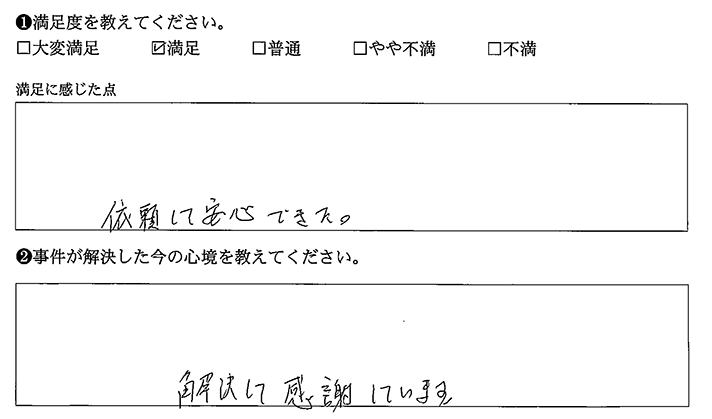 ❶満足度を教えてください。
□大変満足 ☑満足 □普通 □やや不満 □不満
満足に感じた点
依頼して安心できた。
❷事件が解決した今の心境を教えてください。
解決して感謝しています